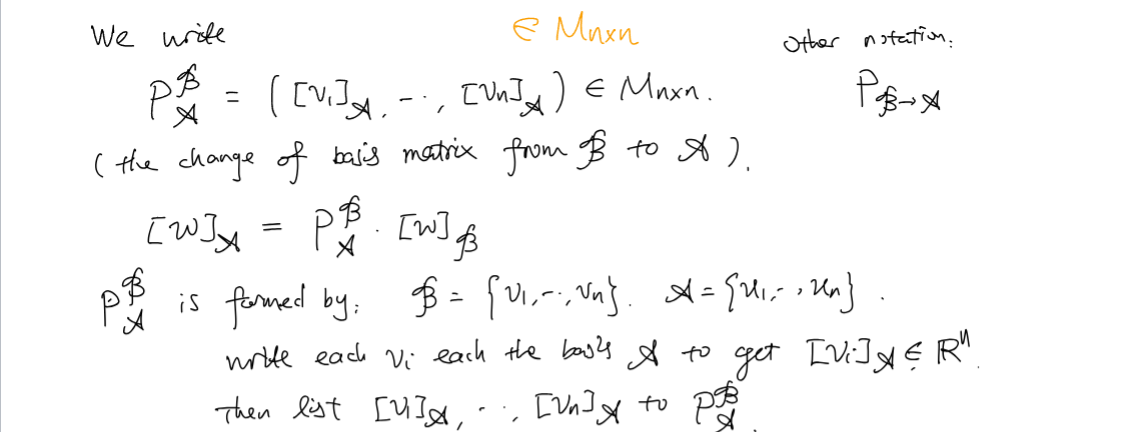 We write ∈ Mnxn Other notation:
P^ℬ_𝒜 = ([v₁]_𝒜, ⋯, [vₙ]_𝒜) ∈ Mnxn. P_ℬ→𝒜
(the change of basis matrix from ℬ to 𝒜).
[w]_𝒜 = P^ℬ_𝒜 · [w]_ℬ
P^ℬ_𝒜 is formed by: ℬ = {v₁, ⋯, vₙ}. 𝒜 = {u₁, ⋯, uₙ}.
write each vᵢ each the basis 𝒜 to get [vᵢ]_𝒜 ∈ ℝⁿ.
Then list [v₁]_𝒜, ⋯, [vₙ]_𝒜 to P^ℬ_𝒜.